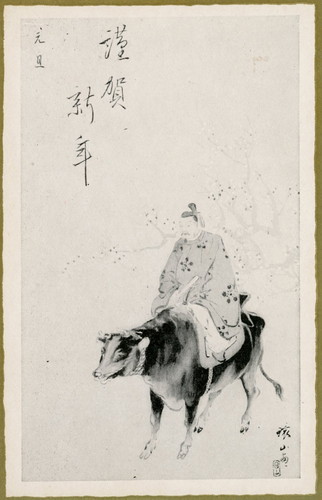 謹賀
新年
元旦
山